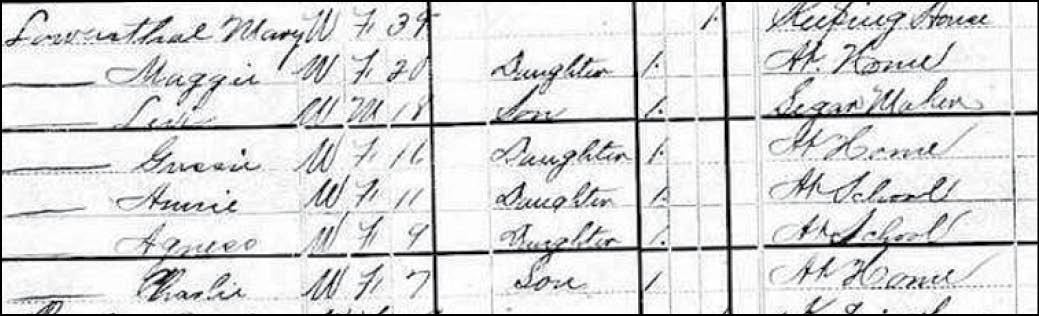 Lowensthal Mary W F 39 1 Keeping House
Maggie W F 20 Daughter 1 At Home
Levi W M 18 Son 1 Segar Maker
Gussie W F 16 Daughter 1 At Home
Annie W F 11 Daughter 1 At School
Agness W F 9 Daughter 1 At School
Charlie W F 7 Son 1 At Home